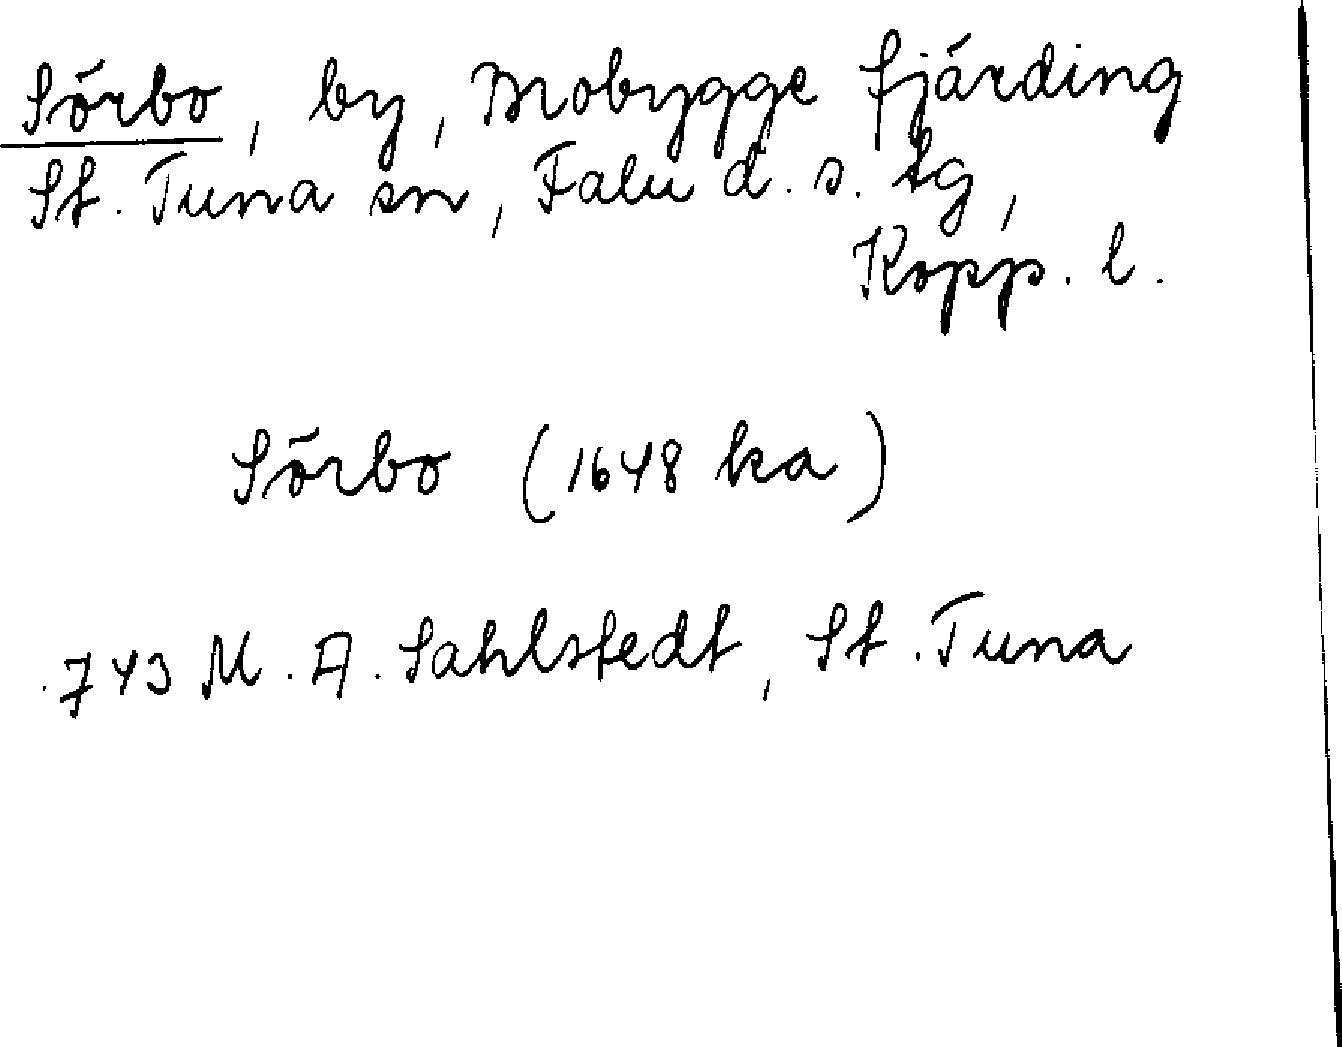 Sörbo, by, Mobygge fjärding
St. Tuna sn, Falu d. s. tg,
Kopp. l.
Sörbo (1648 ka)
.743 M. A. Sahlstedt, St. Tuna